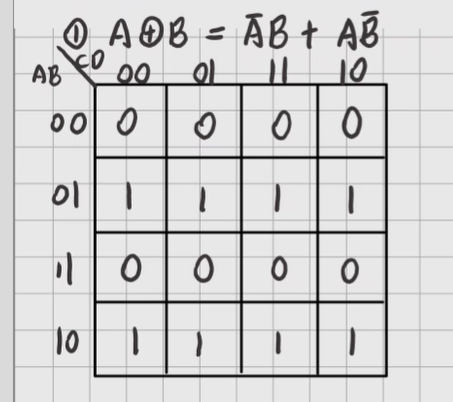 ① A⊕B = A̅B + AB̅
AB CD 00 01 11 10
00 0 0 0 0
01 1 1 1 1
11 0 0 0 0
10 1 1 1 1